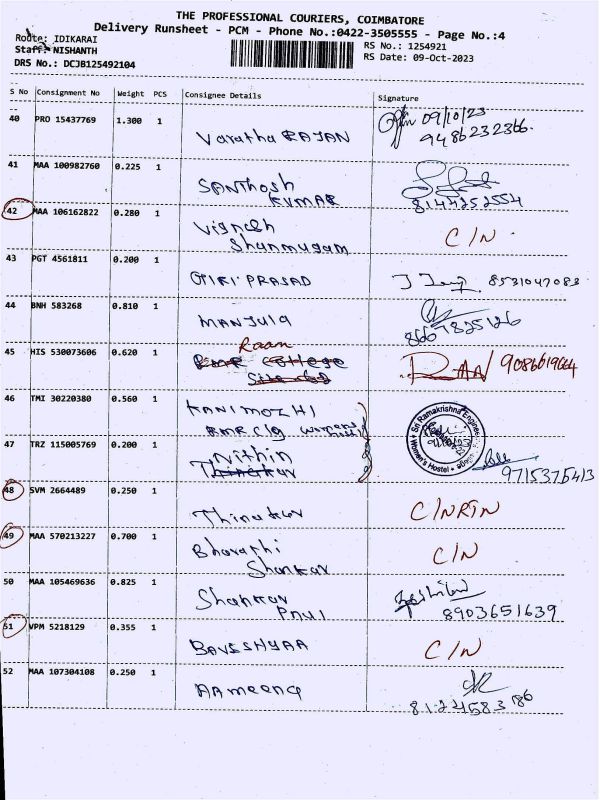 THE PROFESSIONAL COURIERS, COIMBATORE
Delivery Runsheet - PCM - Phone No.:0422-3505555 - Page No.:4
Route: IDIKARAI
RS No.: 1254921
Staff: NISHANTH
RS Date: 09-Oct-2023
DRS No.: DCJB125492104
S No Consignment No Weight PCS Consignee Details Signature
40 PRO 15437769 1.300 1 Varatha RAJAN 09/10/23
9486232366.
41 MAA 100982760 0.225 1 SANTHOSh
KUMAR 8144252554
42 MAA 106162822 0.280 1 Vignesh
Shanmugam C/N
43 PGT 4561811 0.200 1 GIRI PRASAD 8531047083
44 BNH 583268 0.810 1 MANJULA
8667825126
45 HIS 530073606 0.620 1 Raam
9086619664
46 TMI 30220380 0.560 1 KANIMOZHI
Sri Ramakrishna
Women's Hostel
47 TRZ 115005769 0.200 1 Nithin
Thinakar 9715375413
48 SVM 2664489 0.250 1 Thinakar C/NRIN
49 MAA 570213227 0.700 1 Bharathi
Shankar C/N
50 MAA 105469636 0.825 1 Shankar
8903651639
51 VPM 5218129 0.355 1 BAVESHYAA C/N
52 MAA 107304108 0.250 1 AAmeena
8124583186